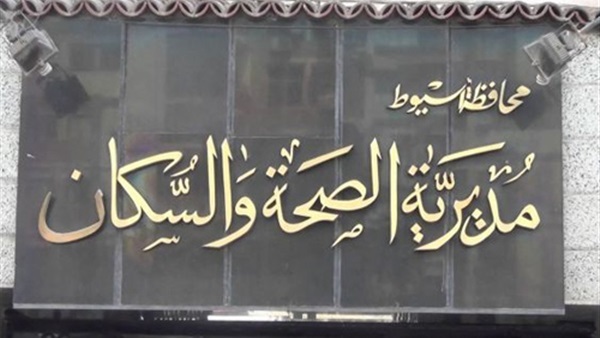 محافظة أسيوط
مديريَّة الصحة والسُّكان